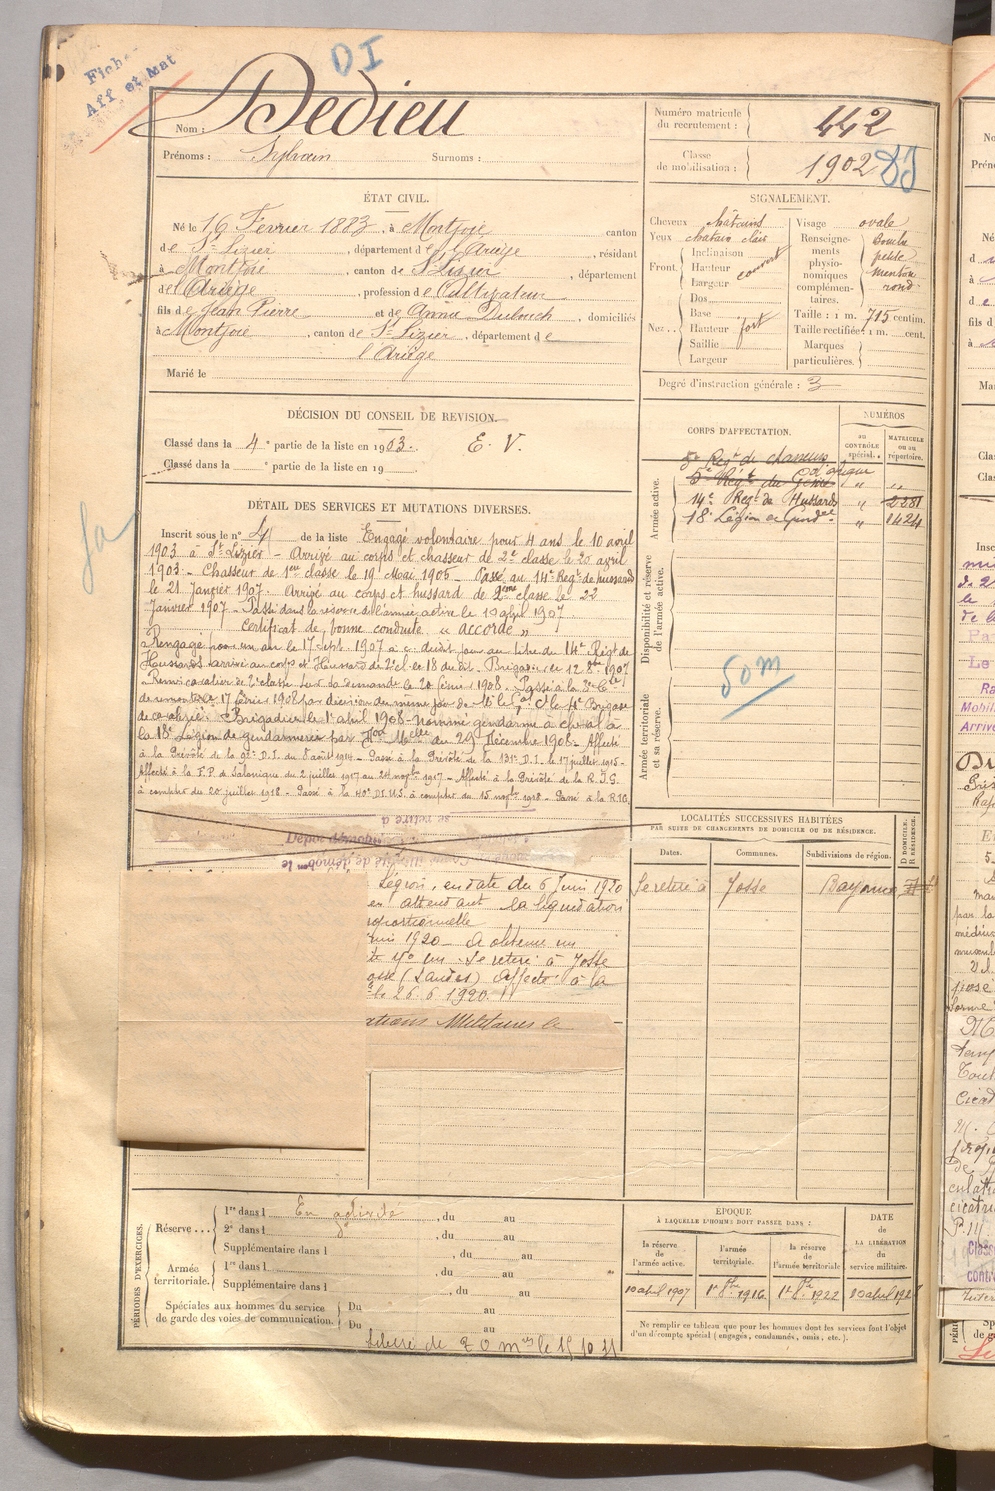 Aff et Mat
DI
Nom : Dedieu
Prénoms : Sylvain Surnoms :
Numéro matricule du recrutement : 442
Classe de mobilisation : 1902
ÉTAT CIVIL.
Né le 16 Février 1883, à Montjoie canton
de St Lizier, département de l'Ariège, résidant
à Montjoie, canton de St Lizier, département
de l'Ariège, profession de Cultivateur
fils de Jean Pierre et de Anna Dubuch, domiciliés
à Montjoie, canton de St Lizier, département de
l'Ariège
Marié le
SIGNALEMENT.
Cheveux châtains
Yeux chatain clair
Front. Inclinaison
Hauteur couvert
Largeur
Nez.. Dos
Base
Hauteur fort
Saillie
Largeur
Visage ovale
Renseignements physionomiques complémentaires. Bouche petite menton rond.
Taille : 1 m. 715 centim.
Taille rectifiée : 1 m. cent.
Marques particulières.
Degré d'instruction générale : 3
DÉCISION DU CONSEIL DE REVISION.
Classé dans la 4e partie de la liste en 1903. E. V.
Classé dans la e partie de la liste en 19
CORPS D'AFFECTATION.
NUMÉROS
AU CONTRÔLE spécial.
MATRICULE ou au répertoire.
Armée active.
5e Regt de chasseurs d'afrique
5e Regt du Génie " "
14e Regt de Hussards " 2281
18e Légion de Gendie " 8424
Disponibilité et réserve de l'armée active.
50m
Armée territoriale et sa réserve.
DÉTAIL DES SERVICES ET MUTATIONS DIVERSES.
Inscrit sous le n° 4 de la liste Engagé volontaire pour 4 ans le 10 avril
1903 à St Lizier - Arrivé au corps et chasseur de 2e classe le 20 avril
1903 - Chasseur de 1ere classe le 19 Mai 1905 - Passé au 14e Regt de hussards
le 21 Janvier 1907. Arrivé au corps et hussard de 2ème classe le 22
Janvier 1907 - Passé dans la réserve de l'armée active le 10 avril 1907
Certificat de bonne conduite " accordé "
Rengagé pour un an le 17 sept. 1907 à c. dudit jour au titre du 14e Regt de
Hussards arrivé au corps et Hussard de 2e cl. le 18 dudit. Brigadier le 12 8bre 1907
Remis cavalier de 2e classe sur sa demande le 20 février 1908 - Passé à la 3e Cie
de remonte le 17 février 1908 par décision du même jour de Mr le Gal Ct le 4e Brigade
de cavalerie. Brigadier le 1er abril 1908 - nommé gendarme à cheval à
la 18e Légion de gendarmerie par Don Melle du 29 Décembre 1908 - Affecté
à la Prévôté de la D.I. du 8 août 1914 - Passé à la Prévôté de la 131e D.I. le 17 juillet 1915 -
Affecté à la F.P. de Salonique du 2 juillet 1917 au 24 novbre 1917 - Affecté à la Prévôté de la R.F.G.
à compter du 20 juillet 1918 - Passé à la 40e D.I.U.S. à compter du 15 novbre 1918 - Passé à la R.T.G.
se retire à
Dépôt démobr
Légion, en date du 6 Juin 1920
en attendant la liquidation
proportionnelle
juin 1920 - a obtenu un
Se retire à Josse
Josse (Landes) affecté à la
le 26.6.1920.
ations Militaires le
LOCALITÉS SUCCESSIVES HABITÉES
PAR SUITE DE CHANGEMENTS DE DOMICILE OU DE RÉSIDENCE.
Dates. Communes. Subdivisions de région. D DOMICILE. R RÉSIDENCE.
Se retire à Josse Bayonne
PÉRIODES D'EXERCICES.
Réserve... 1re dans l En activité, du au
2e dans l, du au
Supplémentaire dans l, du au
Armée territoriale. 1re dans l, du au
Supplémentaire dans l, du au
Spéciales aux hommes du service de garde des voies de communication. Du au
Du au
ÉPOQUE
À LAQUELLE L'HOMME DOIT PASSER DANS :
la réserve de l'armée active. l'armée territoriale. la réserve de l'armée territoriale.
DATE de LA LIBÉRATION du service militaire.
10 abril 1907 1er 8bre 1916. 1er 8bre 1922
Ne remplir ce tableau que pour les hommes dont les services font l'objet
d'un décompte spécial (engagés, condamnés, omis, etc.).